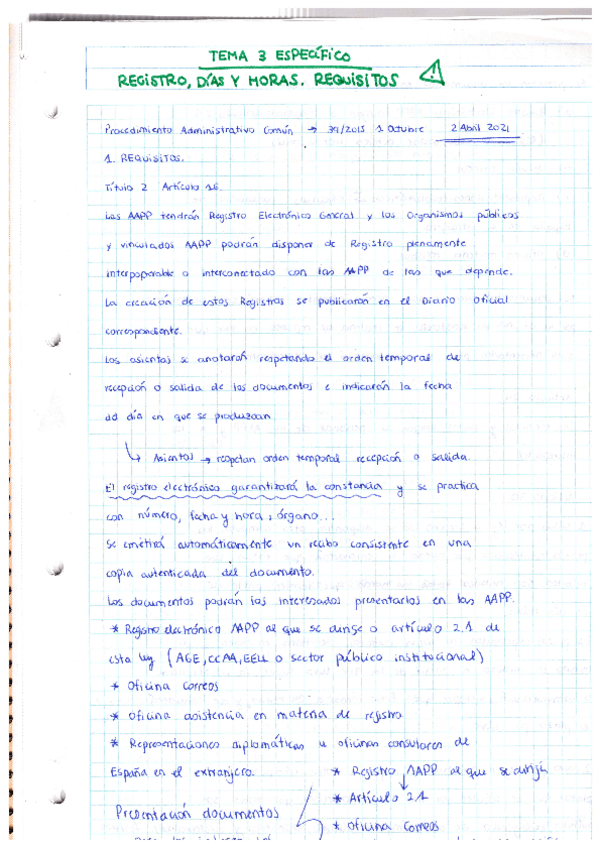 TEMA 3 ESPECÍFICO
REGISTRO, DÍAS Y HORAS. REQUISITOS
Procedimiento Administrativo Común → 39/2015 1 Octubre 2 Abril 2021
1. REQUISITOS.
Título 2 Artículo 16.
Las AAPP tendrán Registro Electrónico General y los Organismos públicos
y vinculados AAPP podrán disponer de Registro plenamente
interpoperable o interconectado con las AAPP de las que depende.
La creación de estos Registros se publicarán en el Diario Oficial
correspondiente.
Los asientos se anotarán respetando el orden temporal de
recepción o salida de los documentos e indicarán la fecha
del día en que se produzcan
↳ Asientos → respetan orden temporal recepción o salida.
El registro electrónico garantizará la constancia y se practica
con número, fecha y hora, órgano...
Se emitirá automáticamente un recibo consistente en una
copia autenticada del documento.
Los documentos podrán los interesados presentarlos en las AAPP.
* Registro electrónico AAPP al que se dirige o artículo 2.1 de
esta ley (AGE, CCAA, EELL o sector público institucional)
* Oficina Correos
* Oficina asistencia en materia de registro
* Representaciones diplomáticas u oficinas consulares de
España en el extranjero.
* Registro AAPP al que se dirija
* Artículo 2.1
Presentación documentos
* Oficina Correos